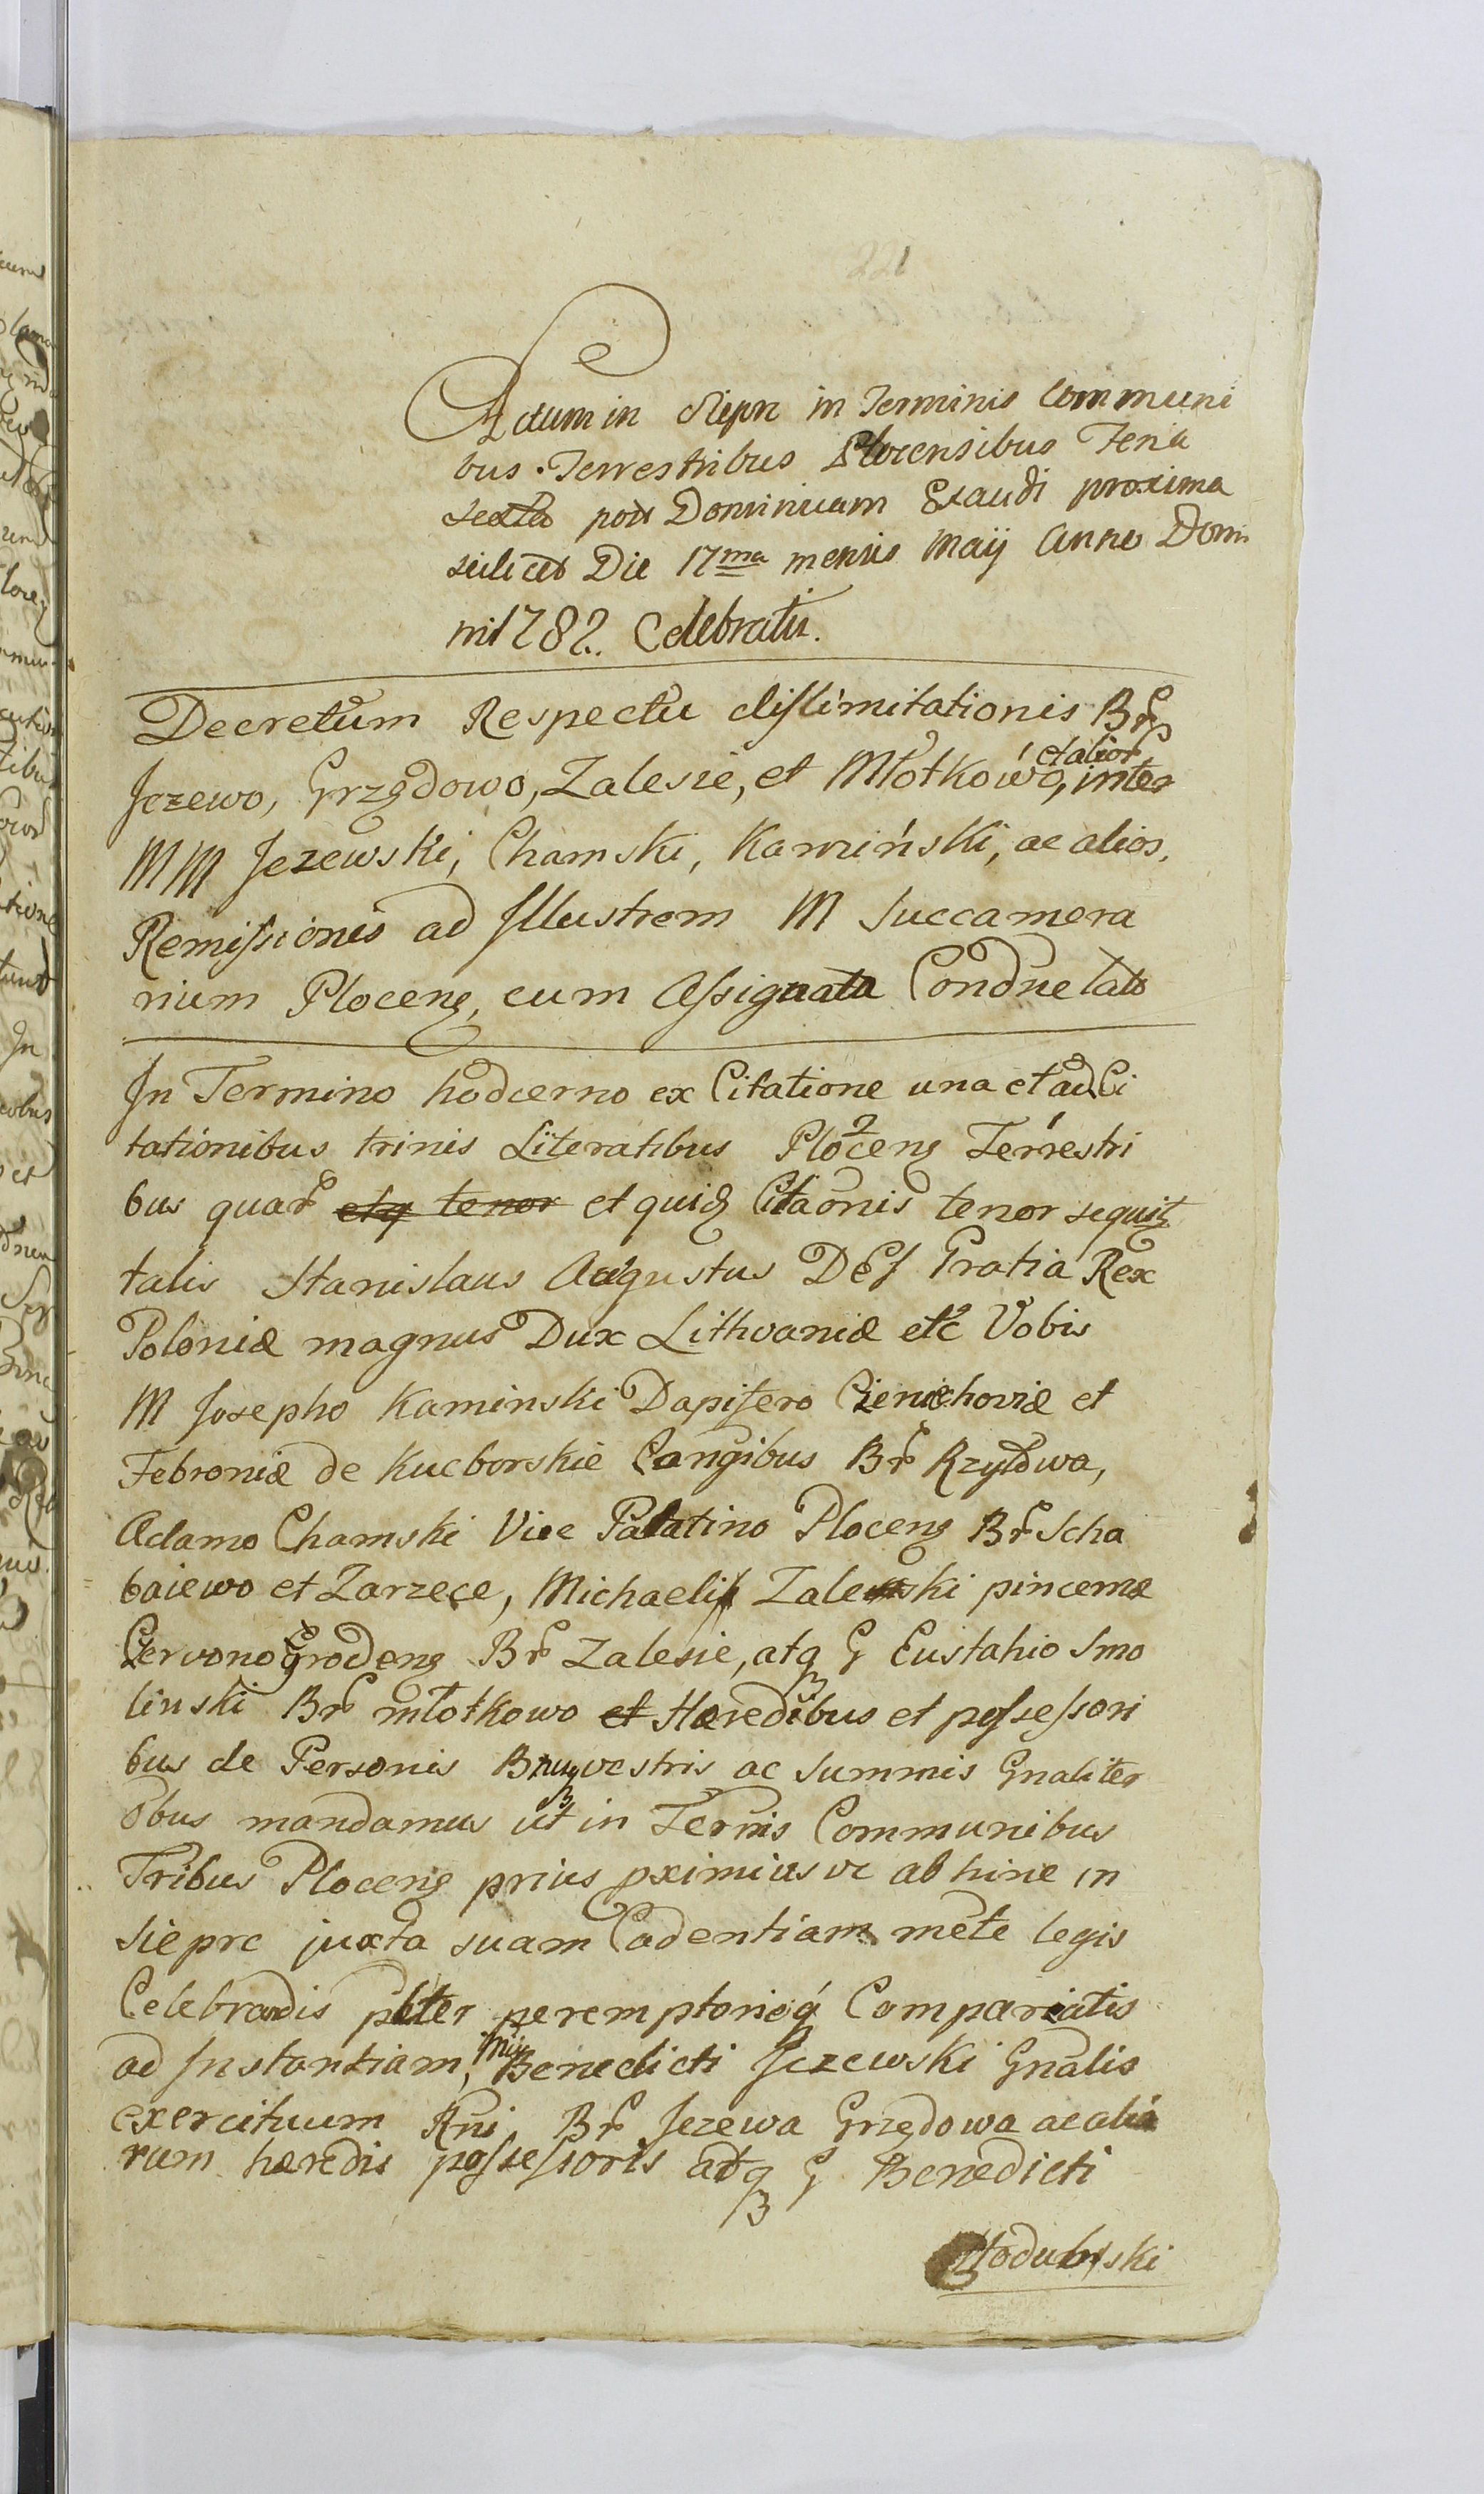 221
Actum in Siepr in Terminis Communi
bus Terrestribus Plocensibus Feria
sexta post Dominicam Exaudi proxima
scilicet Die 17ma mensis Maij Anno Domi
ni 1782. Celebratis.
Decretum Respectu dislimitationis Br
Jezewo, Grzędowo, Zalesie, et Młotkowo, et alior inter
MM Jezewski, Chamski, Kamiński, ac alios,
Remissionis ad Illustrem M Succamera
rium Ploceng, cum Assignata
In Termino hodierno ex Citatione una et ad Ci
tationibus trinis Literatibus Ploceng Terrestri
bus quar et quid Citaonis tenor sequit
talis Stanislaus Augustus DEI Gratia Rex
Poloniæ magnus Dux Lithvaniæ etc Vobis
M Josepho Kaminski Dapifero et
Febroniæ de Kucborskie Congibus Br
Adamo Chamski Vice Palatino Ploceng Br Scha
baiewo et Zarzece, Michaeli Zaleski pincernæ
Czerwonogrodeng Br Zalesie, atq G Eustahio Smo
linski Br młotkowo Hæredibus et possessori
bus de Personis vestris ac summis Gnaliter
Obus mandamus ut in Ternis Communibus
Tribus Ploceng prius pximius ve ab hinc in
Siepre juxta suam Cadentiam mete legis
Celebrandis plter peremptorieq Compareatis
ad Instantiam, Mfci Benedicti Jezewski Gnalis
exercituum Rni Br Jezewa Grzędowa ac alia
rum hæredis possessoris atq G Benedicti